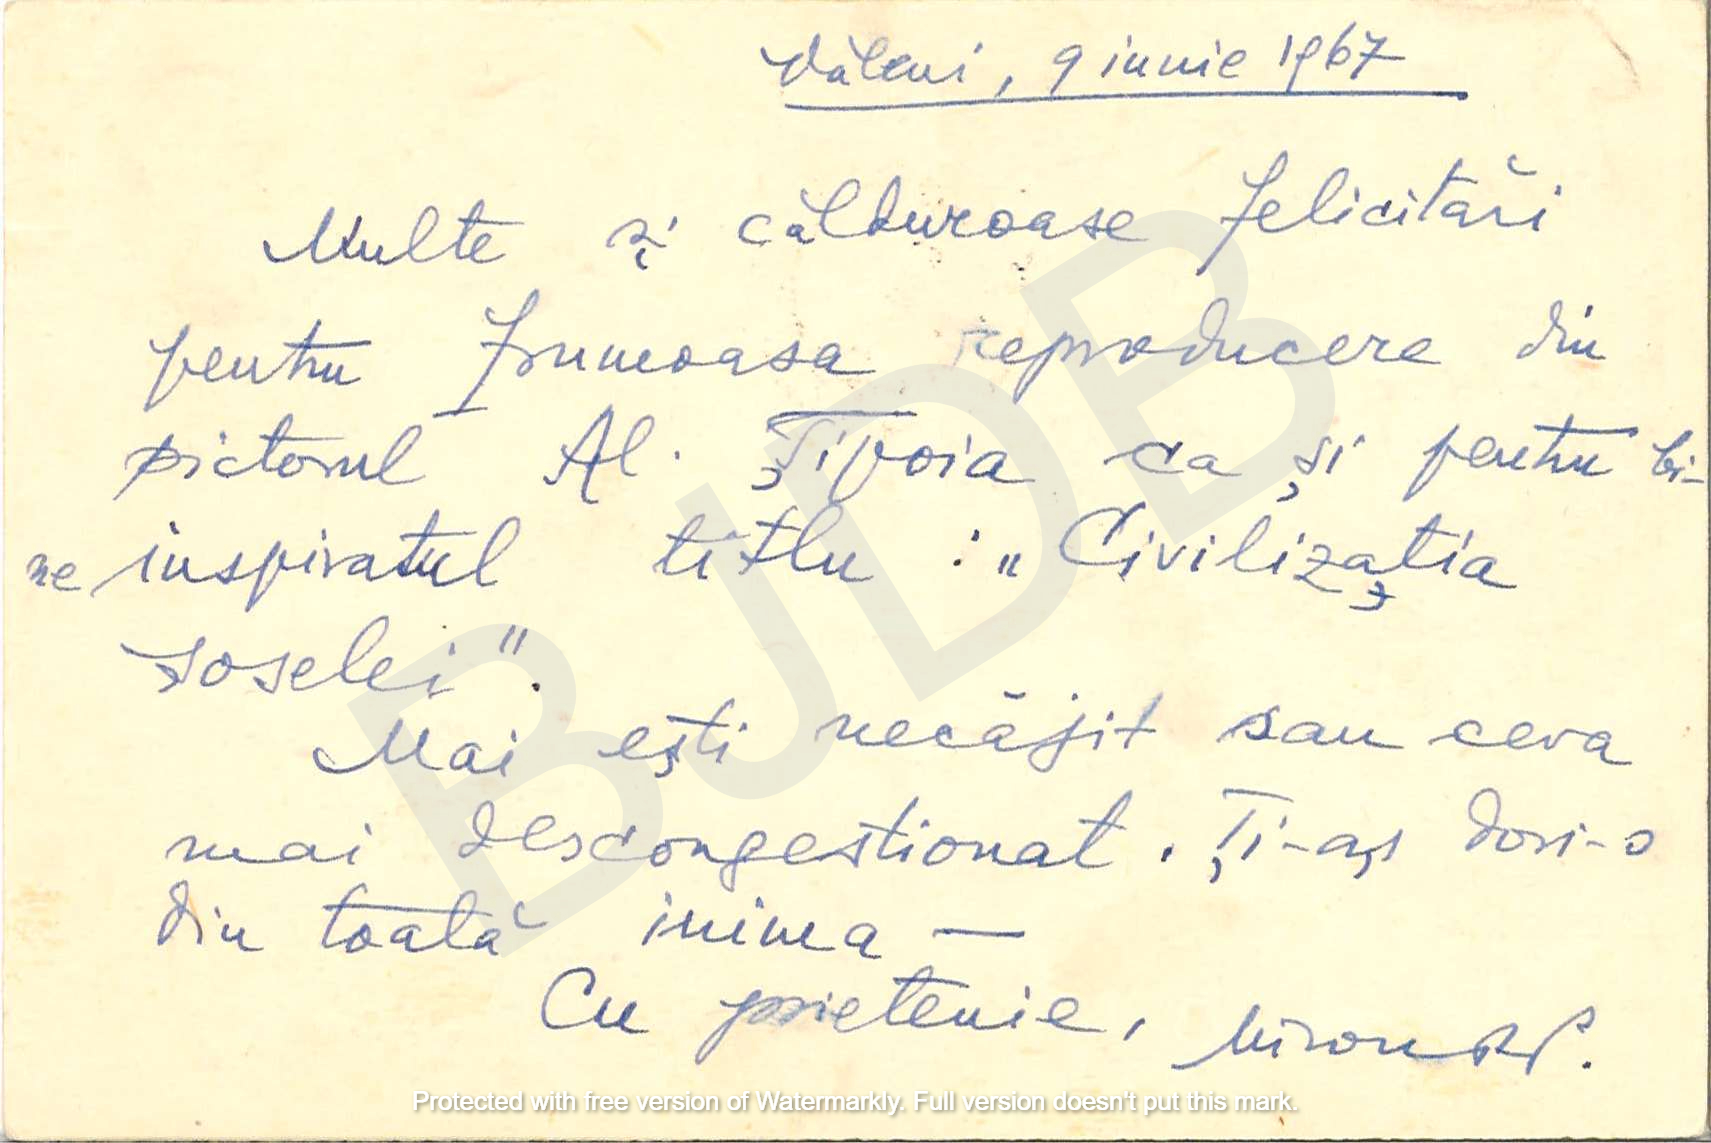 Văleni, 9 iunie 1967
Multe și călduroase felicitări
pentru frumoasa reproducere din
pictorul Al. Țipoia ca și pentru bi-
ne inspiratul titlu : „Civilizația
soselei".
Mai ești necăjit sau ceva
mai descongestionat. Ți-aș dori-o
din toată inima —
Cu prietenie, Miron
BJDB
Protected with free version of Watermarkly. Full version doesn't put this mark.